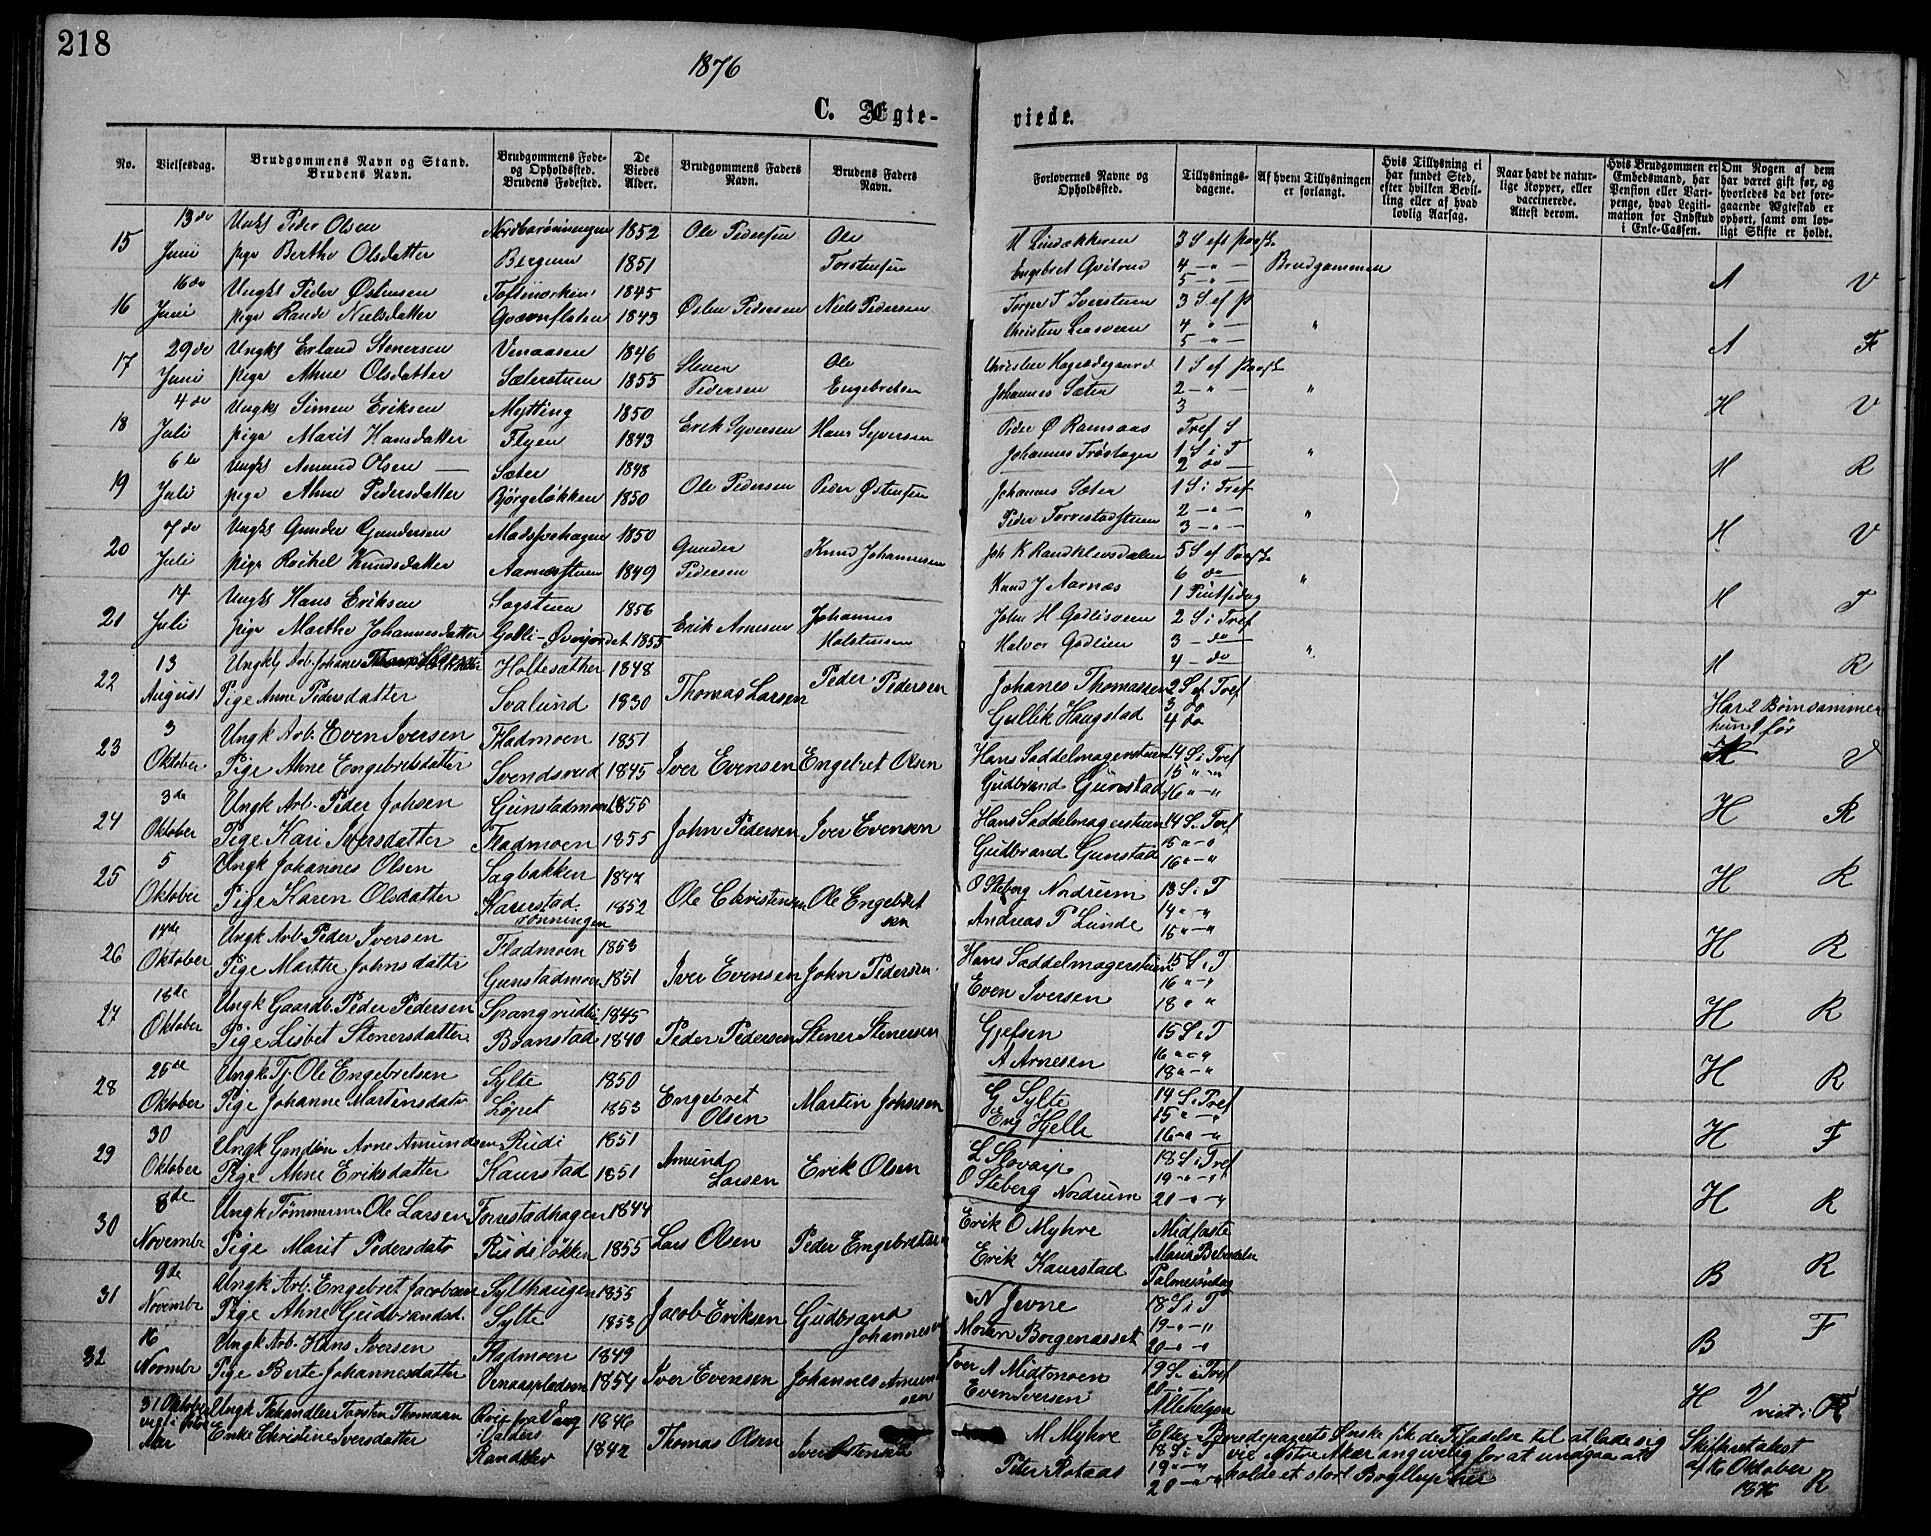 218
1876
C. Ægte-
viede.
No.
Vielsesdag.
Brudgommens Navn og Stand.
Brudens Navn.
Brudgommens Føde-
og Opholdssted.
Brudens Fødested.
De
Viedes
Alder.
Brudgommens Faders
Navn.
Brudens Faders
Navn.
Forlovernes Navne og
Opholdssted.
Tillysnings-
dagene.
Af hvem Tillysningen
er forlangt.
Hvis Tillysning ei
har fundet Sted,
efter hvilken Bevil-
ling eller af hvad
lovlig Aarsag.
Naar havt de natur-
lige Kopper, eller
vaccinerede.
Attest derom.
Hvis Brudgommen er
Embedsmand, har
Pension eller Vart-
penge, hvad Legiti-
mation for Indskud
i Enke-Cassen.
Om Nogen af dem
har været gift før, og
hvorledes da det fore-
gaaende Ægteskab er
ophørt, samt om lov-
ligt Skifte er holdt.
15 13 do Juni
Ungk Peder Olsen 1852 Ole Pedersen Ole Torstensen
pige Berthe Olsdatter Bergum 1851
Engebret 4 - " - Brudgommen
5 - " -
A V
16 16 do Juni
Ungk Peder Østensen 1845 Østen Pedersen Niels Pedersen
pige Rande Nielsdatter 1843
3 S ef p
Christen 4 " - "
5 " -
A F
17 29 do Juni
Ungk Erland Stenersen Venaasen 1846 Stener Pedersen Ole Engebretsen
pige Ahne Olsdatter Sæterstuen 1855
1 S ef
Johannes Sæter 2 - " - "
3
H V
18 4 do Juli
Ungk Simen Eriksen Mytting 1850 Erik Syversen Hans Syversen
pige Marit Hansdatter Flyen 1843
Peder Ø Ramsaas Tref S
Johannes 1 S i T "
2 do -
H R
19 6 do Juli
Ungk Amund Olsen - Sæter 1848 Ole Pedersen Peder Østensen
pige Ahne Pedersdatter 1850
Johannes Sæter 1 S i Tref
Peder 2 - " - "
3 - " -
H V
20 7 do Juli
Ungk Gunder Gundersen 1850 Gunder Pedersen Knud Johannesen
pige Rachel Knudsdatter 1849
Joh K Randklevsdalen 5 S ef
Knud J Aarnæs 6 do "
1
H T
21 14 Juli
Ungk Hans Eriksen Sagstuen 1856 Erik Arnesen Johannes Halstensen
pige Marthe Johannesdatter Golli-Øverjordet 1855
John H 2 S i Tref
Halvor 3 - do "
4 - do
H R
22 13 August
Ungk Arb. Johanes Holtesæther 1848 Thomas Larsen Peder Pedersen
Pige Anne Pedersdatter Svalund 1830
Johanes Thomassen 2 S ef Tref
Gullik Haugstad 3 do
4 do
Har 2 Børn sammen
hun 1 før
23 3 Oktober
Ungk Arb. Even Iversen Fladmoen 1851 Iver Evensen Engebret Olsen
Pige Ahne Engebretsdatter Svendsrud 1845
Hans Saddelmagerstuen 14 S i Tref
Gudbrand Gunstad 15 " - "
16 " - "
V
24 3 de Oktober
Ungk Arb. Peder Johsen Gunstadmoen 1855 John Pedersen Iver Evensen
Pige Kari Iversdatter Fladmoen 1855
Hans Saddelmagerstuen 14 S i Tref
Gudbrand Gunstad 15 " - "
16 " - "
H R
25 5 Oktober
Ungk Johannes Olsen Sagbakken Ole Christensen Ole Engebretsen
Pige Karen Olsdatter Kaurstad rønningen 1852
O Steberg Nordrum 13 S i T
Andreas P Lunde 14 " - "
15 " - "
H R
26 14 de Oktober
Ungk Arb. Peder Iversen Fladmoen 1853 Iver Evensen John Pedersen
Pige Marthe Johnsdatter Gunstadmoen 1851
Hans Saddelmagerstuen 15 S i T
Even Iversen 16 " - "
18 " "
H R
27 18 de Oktober
Ungk Gaardb. Peder Pedersen Spangrudli 1845 Peder Pedersen Stener Stenersen
Pige Lisbet Stenersdatter Baanstad 1840
Gjefsen 15 S i T
A Arnesen 16 " - "
18 " - "
H R
28 25 de Oktober
Ungk Tj. Ole Engebretsen Sylte 1850 Engebret Olsen Martin Johsen
Pige Johanne Martinsdatr Løpet 1853
G Sylte 14 S i Tref
Eng Helle 15 " - "
16 " - "
H F
29 30 Oktober
Ungk Arne Amundsen Rudi 1851 Amund Larsen Erik Olsen
Pige Ahne Eriksdatter Kaurstad 1851
18 S i Tref
O Steberg Nordrum 19 - " - "
20 - " - "
H R
30 8 de Novembr
Ungk Tømmerm. Ole Larsen Forrestadhagen 1844 Lars Olsen Peder Engebretsen
Pige Marit Pedersdatr Rudi løkken 1855
Erik O Myhre Midfaste
Erik Kaurstad Maria Bebudelse
Palmesøndag
B R
31 9 de Novembr
Ungk Arb. Engebret Jacobsen Sylthaugen 1855 Jacob Eriksen Gudbrand Johannesen
Pige Ahne Gudbrandsd. Sylte 1853
N Jevne 18 S i T
Morten Borgenasset 19 - " - "
20 - " - "
B F
32 16 Novmbr
Ungk Arb. Hans Iversen Fladmoen 1849 Iver Evensen Johannes Amundsen
Pige Berte Johannesdatter Venaaspladsen 1854
Iver A Midtmoen 19 S i Tref
Even Iversen 20 - "
Allehelgen
H V viet i
31 Oktober viet i Aker
Ungk Torsten Thomasen Qvis fra Vang i Valders 1846 Thomas Olsen Iver Østensen
Enke Christine Iversdatter Randklev 1842
M Myhre Efter Brudeparrets Ønske fik de Tiladelse til at lade sig
18 S i T vie i Østre Aker angivelig for at undgaa at
Peter Rotaas 19 " - " holde et stort Bryllup her
20 - " - "
Skifteretsatest
af 16 Oktober
1876 R